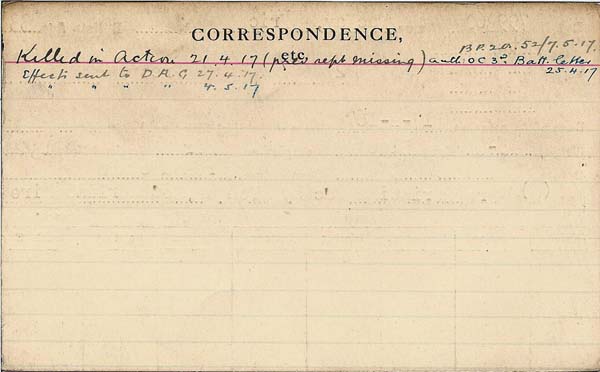 CORRESPONDENCE, etc.
B.P. 20. 52/7.5.17.
Killed in Action 21.4.17 (prev rept missing) auth: OC 3rd Batt. letter
25.4.17
Effects sent to D.A.G 27.4.17.
" " " " 4.5.17